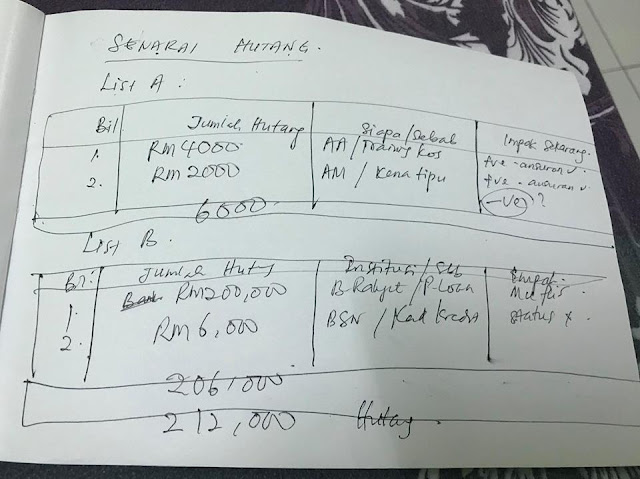 SENARAI HUTANG.
LIST A :
Bil Jumlah Hutang Siapa/Sebab Impak Sekarang.
1. RM 4000 AA/ kos +ve - ansuran ✓.
2. RM 2000 AM / Kena tipu +ve - ansuran ✓
6000 -ve ?
LIST B.
Bil. Jumlah Hutg Institusi/Sbb Impak.
1. RM200,000 B Rakyat / P. Loan Muflis.
2. RM 6,000 BSN / Kad Kredit Status x.
206,000
212,000 Hutang.